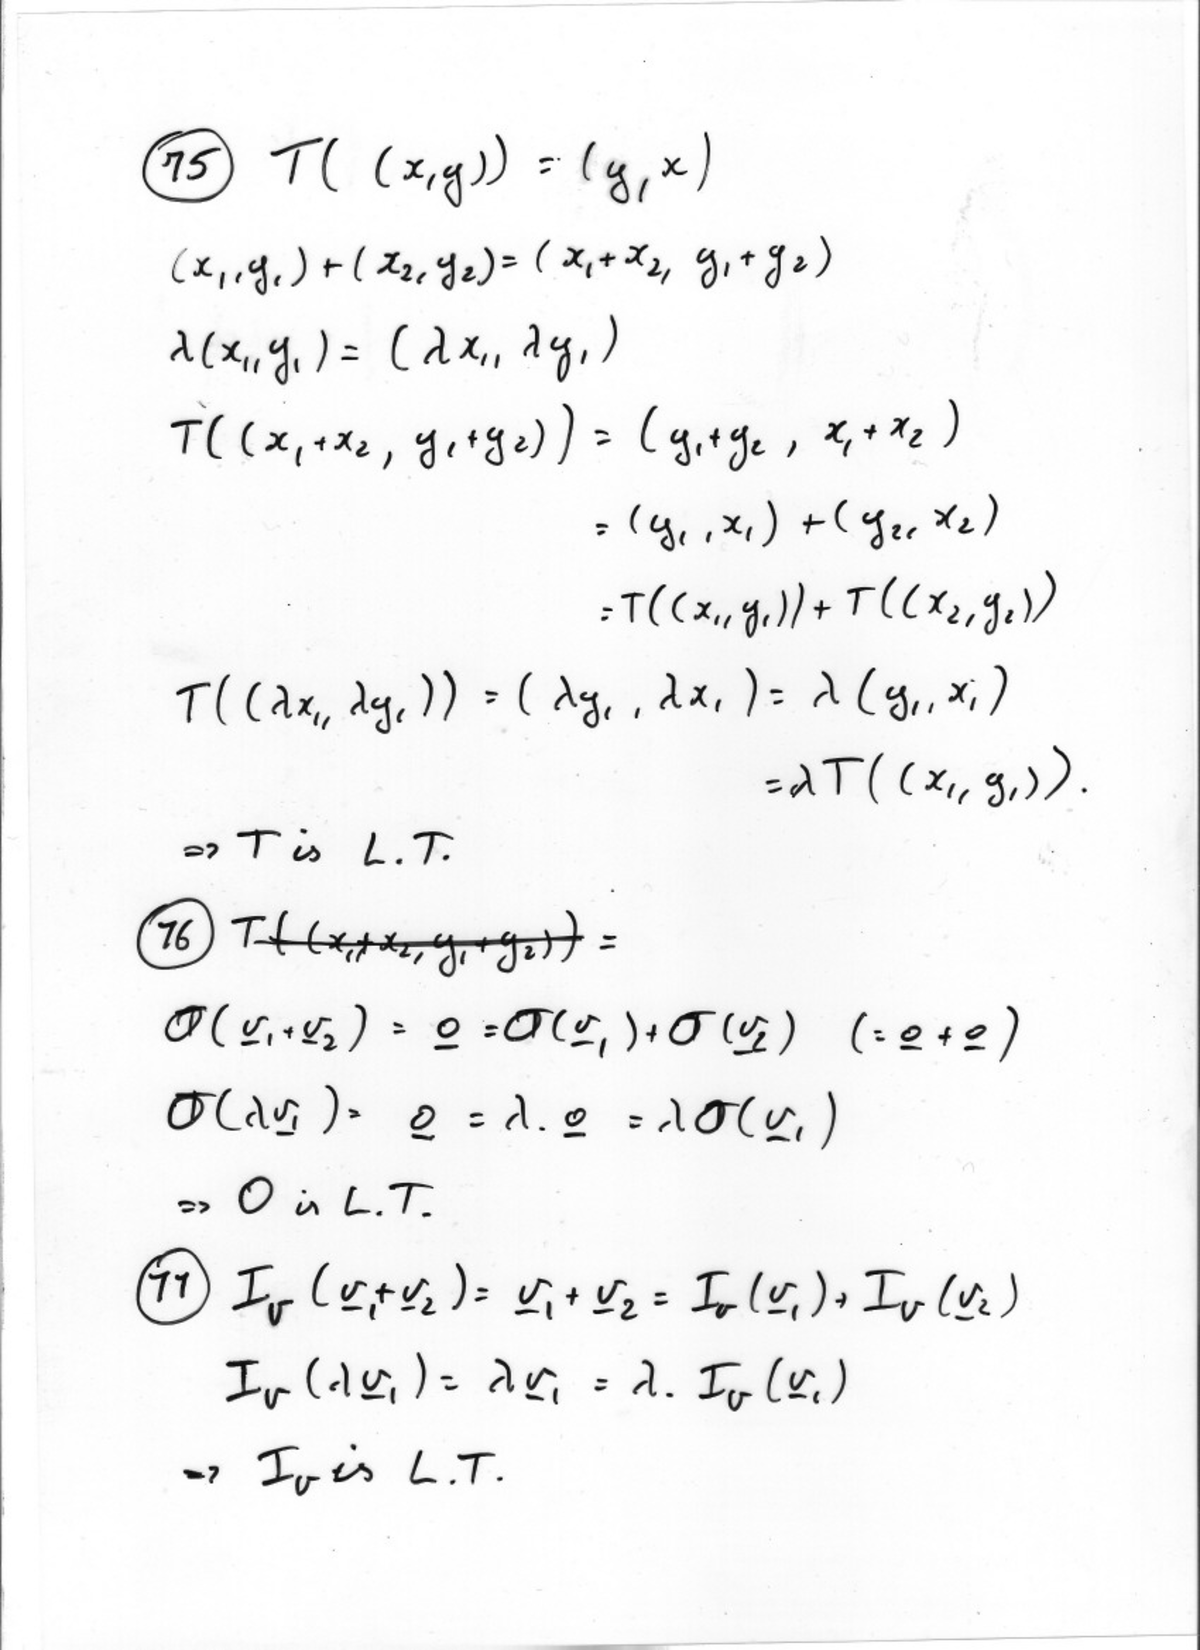 75 T((x,y)) = (y, x)
(x₁, y₁) + (x₂, y₂) = (x₁+x₂, y₁+y₂)
λ(x₁, y₁) = (λx₁, λy₁)
T((x₁+x₂, y₁+y₂)) = (y₁+y₂, x₁+x₂)
= (y₁, x₁) + (y₂, x₂)
= T((x₁, y₁)) + T((x₂, y₂))
T((λx₁, λy₁)) = (λy₁, λx₁) = λ(y₁, x₁)
= λT((x₁, y₁)).
=> T is L.T.
76 T((x₁+x₂, y₁+y₂)) =
O(v₁+v₂) = 0 = O(v₁) + O(v₂) (= 0 + 0)
O(λv₁) = 0 = λ.0 = λO(v₁)
=> O is L.T.
77 Iᵥ(v₁+v₂) = v₁+v₂ = Iᵥ(v₁) + Iᵥ(v₂)
Iᵥ(λv₁) = λv₁ = λ. Iᵥ(v₁)
=> Iᵥ is L.T.